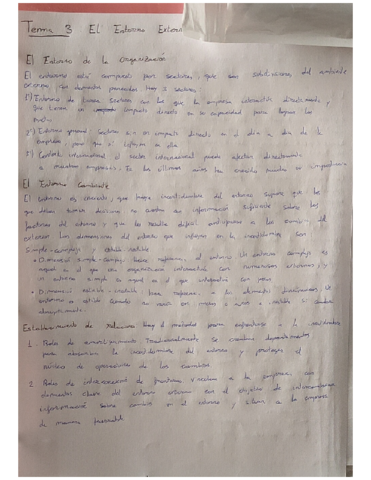 Tema 3 El Entorno Externo
El Entorno de la Organización
El entorno está compuesto por sectores, que son subdivisiones del ambiente
externo, que demandan parecidas. Hay 3 sectores:
1º) Entorno de tarea: Sectores con los que la empresa interactúa directamente y
que tienen un impacto directo en su capacidad para lograr las
metas.
2º) Entorno general: Sectores sin un impacto directo en el día a día de la
empresa pero que sí influyen en ella
3º) Contexto internacional: el sector internacional puede afectar directamente
a muchas empresas. En los últimos años ha crecido mucho su importancia
El Entorno Cambiante
El entorno es cambiante, que haya incertidumbre del entorno supone que los
que deben tomar decisiones no cuentan con información suficiente sobre los
factores del entorno y que les resulta difícil anticiparse a los cambios del
exterior. Las dimensiones del entorno que influyen en la incertidumbre son
simple-complejo y estable-inestable
• Dimensión simple-complejo: hacen referencia al entorno. Un entorno complejo es
aquel en el que una organización interactúa con numerosos exteriores, y
un entorno simple es aquel en el que interactúa con pocos
• Dimensión estable-inestable: hace referencia a los elementos dinámicos. Un
entorno es estable cuando en meses o años e inestable si cambia
abruptamente.
Establecimiento de relaciones: Hay 2 métodos para enfrentarse a la incertidumbre
1. Roles de amortiguamiento: Tradicionalmente se creaban departamentos
para absorber la incertidumbre del entorno y proteger el
núcleo de operaciones de los cambios
2. Roles de interconexión de fronteras: vinculan a la empresa con
elementos clave del entorno externo con el objetivo de intercambiar
información sobre cambios en el entorno y a la empresa
de manera favorable